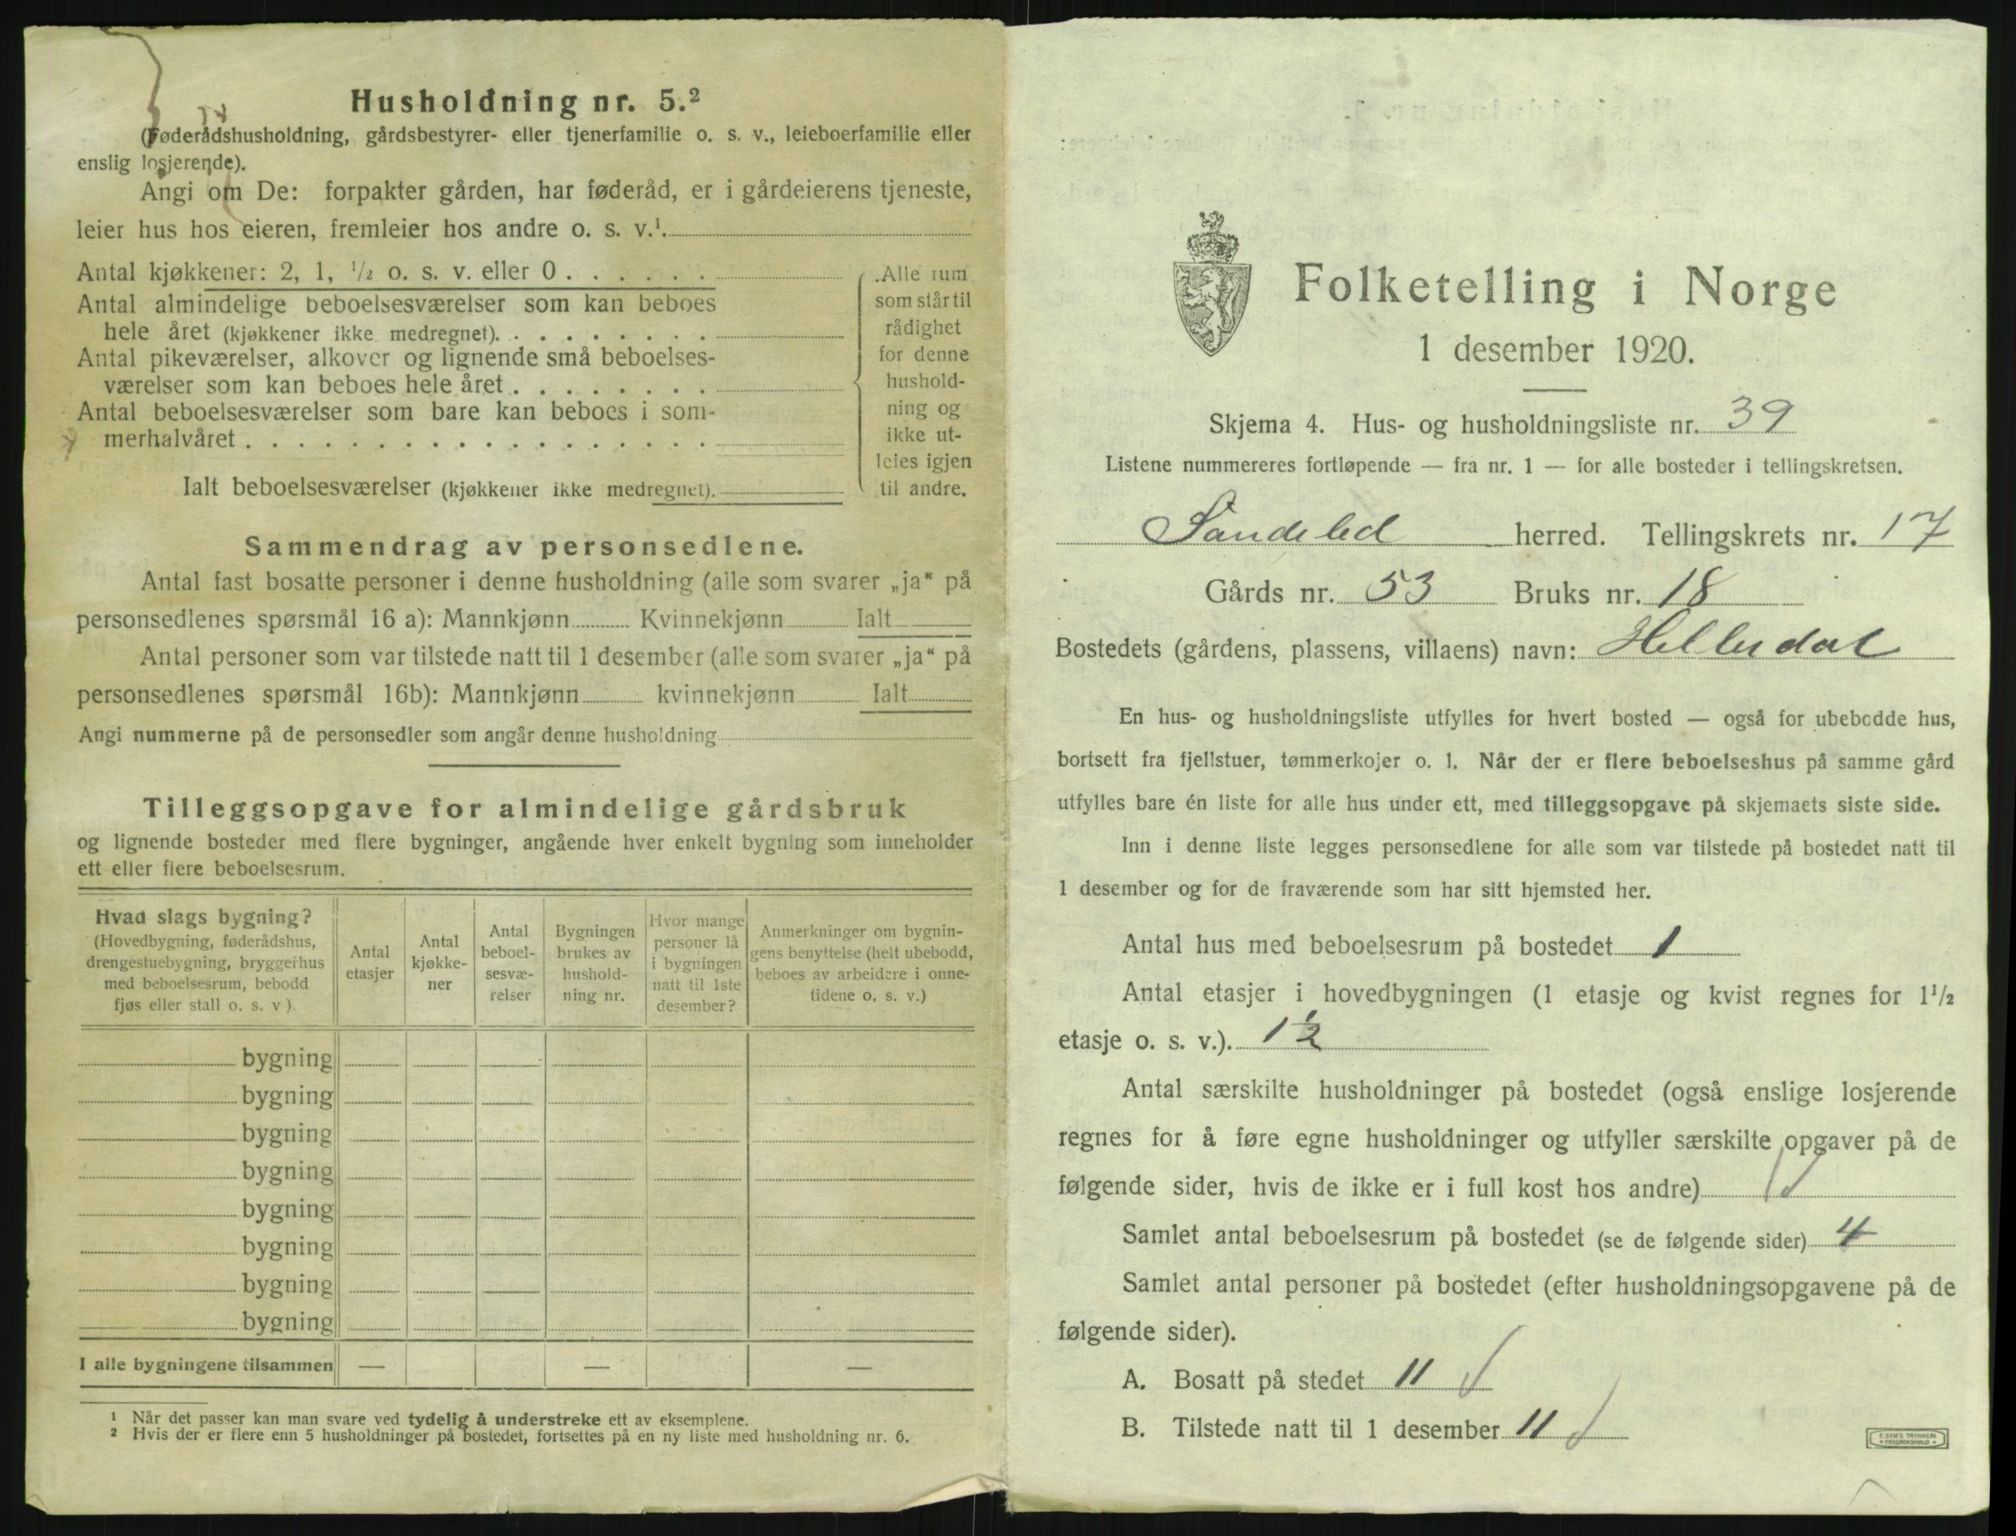 Husholdning nr. 5.²
(Føderådshusholdning, gårdsbestyrer- eller tjenerfamilie o. s. v., leieboerfamilie eller
enslig losjerende).
Angi om De: forpakter gården, har føderåd, er i gårdeierens tjeneste,
leier hus hos eieren, fremleier hos andre o. s. v.¹.
Antal kjøkkener: 2, 1, ½ o. s. v. eller 0 . . . . . .
Antal almindelige beboelsesværelser som kan beboes
hele året (kjøkkener ikke medregnet). . . . . . . . .
Antal pikeværelser, alkover og lignende små beboelses-
værelser som kan beboes hele året . . . . . . . .
Antal beboelsesværelser som bare kan beboes i som-
merhalvåret . . . . . . . . . . . . . . . . . .
Ialt beboelsesværelser (kjøkkener ikke medregnet).
Alle rum
som står til
rådighet
for denne
hushold-
ning og
ikke ut-
leies igjen
til andre.
Sammendrag av personsedlene.
Antal fast bosatte personer i denne husholdning (alle som svarer „ja“ på
personsedlenes spørsmål 16 a): Mannkjønn Kvinnekjønn Ialt
Antal personer som var tilstede natt til 1 desember (alle som svarer „ja“ på
personsedlenes spørsmål 16b): Mannkjønn kvinnekjønn Ialt
Angi nummerne på de personsedler som angår denne husholdning
Tilleggsopgave for almindelige gårdsbruk
og lignende bosteder med flere bygninger, angående hver enkelt bygning som inneholder
ett eller flere beboelsesrum.
Hvad slags bygning?
(Hovedbygning, føderådshus,
drengestuebygning, bryggerhus
med beboelsesrum, bebodd
fjøs eller stall o. s. v ).
Antal
etasjer
Antal
kjøkke-
ner
Antal
beboel-
sesvæ-
relser
Bygningen
brukes av
hushold-
ning nr.
Hvor mange
personer lå
i bygningen
natt til 1ste
desember?
Anmerkninger om bygnin-
gens benyttelse (helt ubebodd,
beboes av arbeidere i onne-
tidene o. s. v.)
bygning
bygning
bygning
bygning
bygning
bygning
bygning
bygning
I alle bygningene tilsammen — — —
¹ Når det passer kan man svare ved tydelig å understreke ett av eksemplene.
² Hvis der er flere enn 5 husholdninger på bostedet, fortsettes på en ny liste med husholdning nr. 6.
Folketelling i Norge
1 desember 1920.
Skjema 4. Hus- og husholdningsliste nr. 39
Listene nummereres fortløpende — fra nr. 1 — for alle bosteder i tellingskretsen.
Søndeled herred. Tellingskrets nr. 17
Gårds nr. 53 Bruks nr. 18
Bostedets (gårdens, plassens, villaens) navn: Hellerdal
En hus- og husholdningsliste utfylles for hvert bosted — også for ubebodde hus,
bortsett fra fjellstuer, tømmerkojer o. l. Når der er flere beboelseshus på samme gård
utfylles bare én liste for alle hus under ett, med tilleggsopgave på skjemaets siste side.
Inn i denne liste legges personsedlene for alle som var tilstede på bostedet natt til
1 desember og for de fraværende som har sitt hjemsted her.
Antal hus med beboelsesrum på bostedet 1
Antal etasjer i hovedbygningen (1 etasje og kvist regnes for 1½
etasje o. s. v.). 1½
Antal særskilte husholdninger på bostedet (også enslige losjerende
regnes for å føre egne husholdninger og utfyller særskilte opgaver på de
følgende sider, hvis de ikke er i full kost hos andre)
Samlet antal beboelsesrum på bostedet (se de følgende sider) 4
Samlet antal personer på bostedet (efter husholdningsopgavene på de
følgende sider).
A. Bosatt på stedet 11
B. Tilstede natt til 1 desember 11